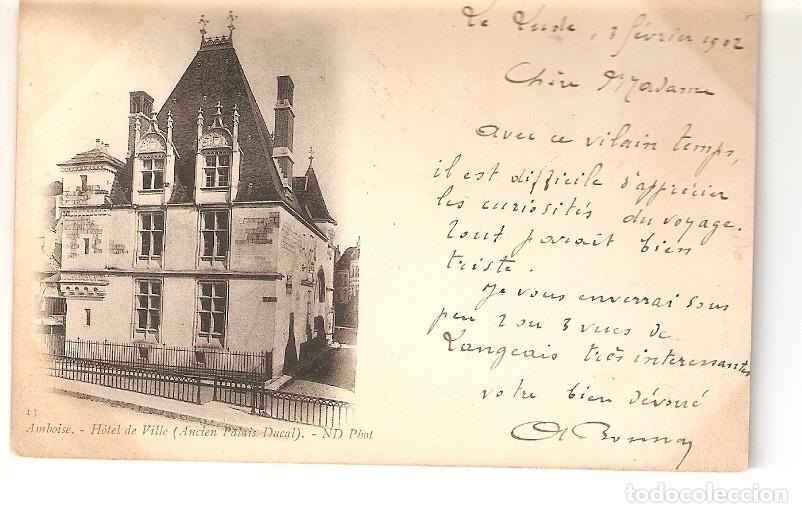 Le Lude, 1 février 1902
Chère Madame
Avec ce vilain temps,
il est difficile d'apprécier
les curiosités du voyage.
Tout paraît bien
triste.
Je vous enverrai sous
peu 2 ou 3 vues de
Langeais très interessantes
votre bien dévoué
13
Amboise. - Hôtel de Ville (Ancien Palais Ducal). - ND Phot
todocoleccion